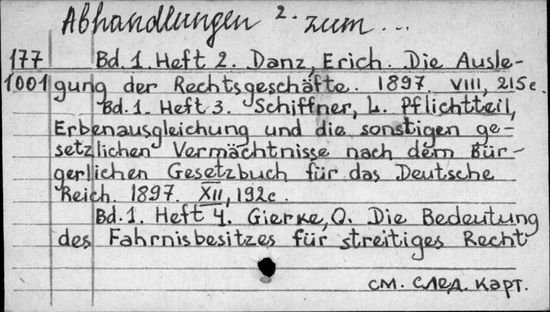 Abhandlungen 2. zum...
177 Bd. 1. Heft 2. Danz, Erich. Die Ausle-
1001 gung der Rechtsgeschäfte. 1897. VIII, 215 c.
Bd. 1. Heft 3. Schiffner, L. Pflichtteil,
Erbenausgleichung und die sonstigen ge-
setzlichen Vermächtnisse nach dem Bür-
gerlichen Gesetzbuch für das Deutsche
Reich. 1897. XII, 192 c.
Bd. 1. Heft 4. Gierke, O. Die Bedeutung
des Fahrnisbesitzes für streitiges Recht
см. след. карт.